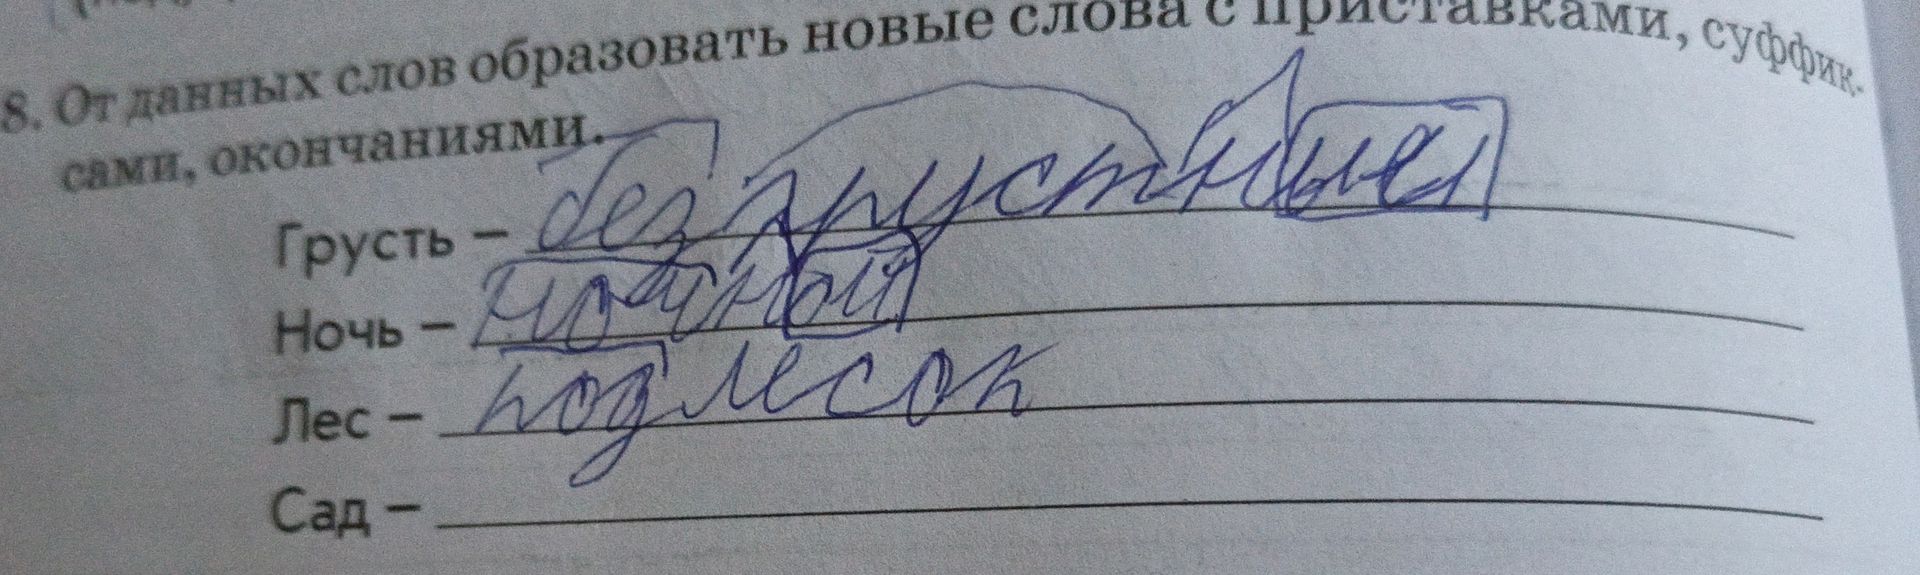 8. От данных слов образовать новые слова с приставками, суффик-
сами, окончаниями.
Грусть – безгрустный
Ночь – ночной
Лес – подлесок
Сад –